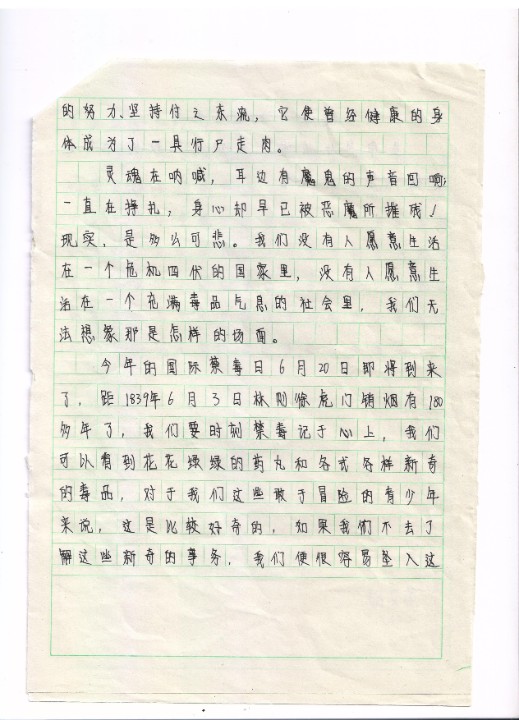 的努力、坚持付之东流，它使曾经健康的身
体成为了一具行尸走肉。
灵魂在呐喊，耳边有魔鬼的声音回响，
一直在挣扎，身心却早已被恶魔所摧残！
现实，是多么可悲。我们没有人愿意生活
在一个危机四伏的国家里，没有人愿意生
活在一个充满毒品气息的社会里，我们无
法想象那是怎样的场面。
今年的国际禁毒日6月20日即将到来
了，距1839年6月3日林则徐虎门销烟有180
多年了，我们要时刻禁毒记于心上，我们
可以看到花花绿绿的药丸和各式各样新奇
的毒品，对于我们这些敢于冒险的青少年
来说，这是比较好奇的，如果我们不去了
解这些新奇的事务，我们便很容易坠入这